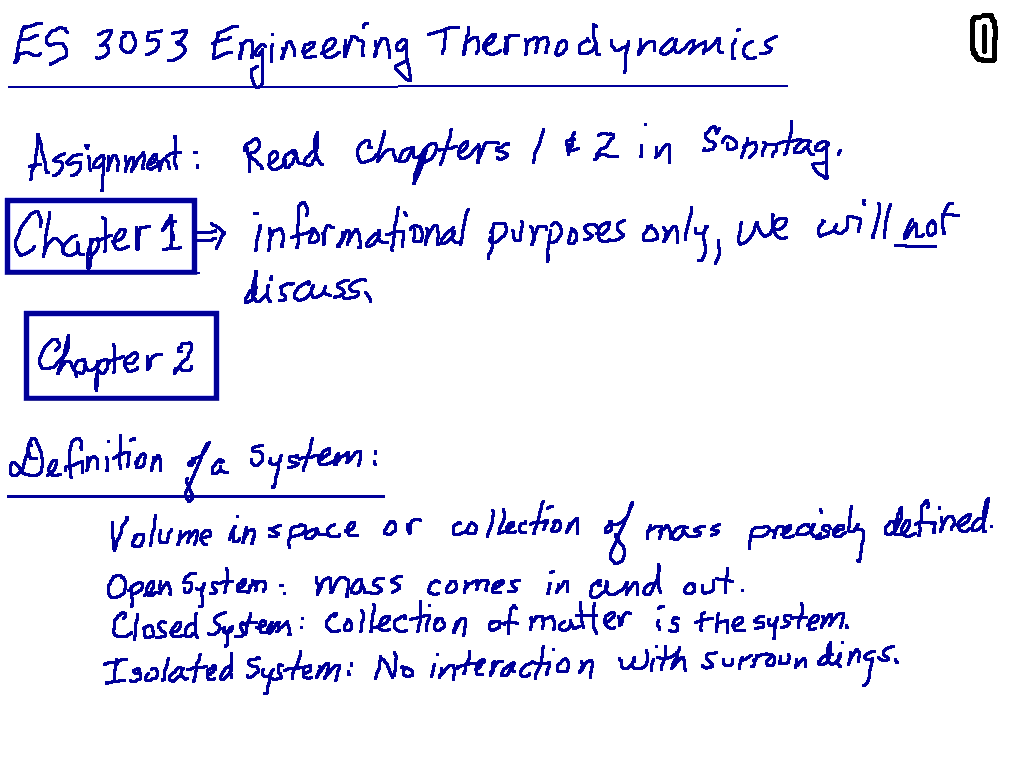 ES 3053 Engineering Thermodynamics 1
Assignment: Read Chapters 1 & 2 in Sonntag.
Chapter 1 ⇒ informational purposes only, we will not
discuss.
Chapter 2
Definition of a System:
Volume in space or collection of mass precisely defined.
Open System: mass comes in and out.
Closed System: Collection of matter is the system.
Isolated System: No interaction with surroundings.